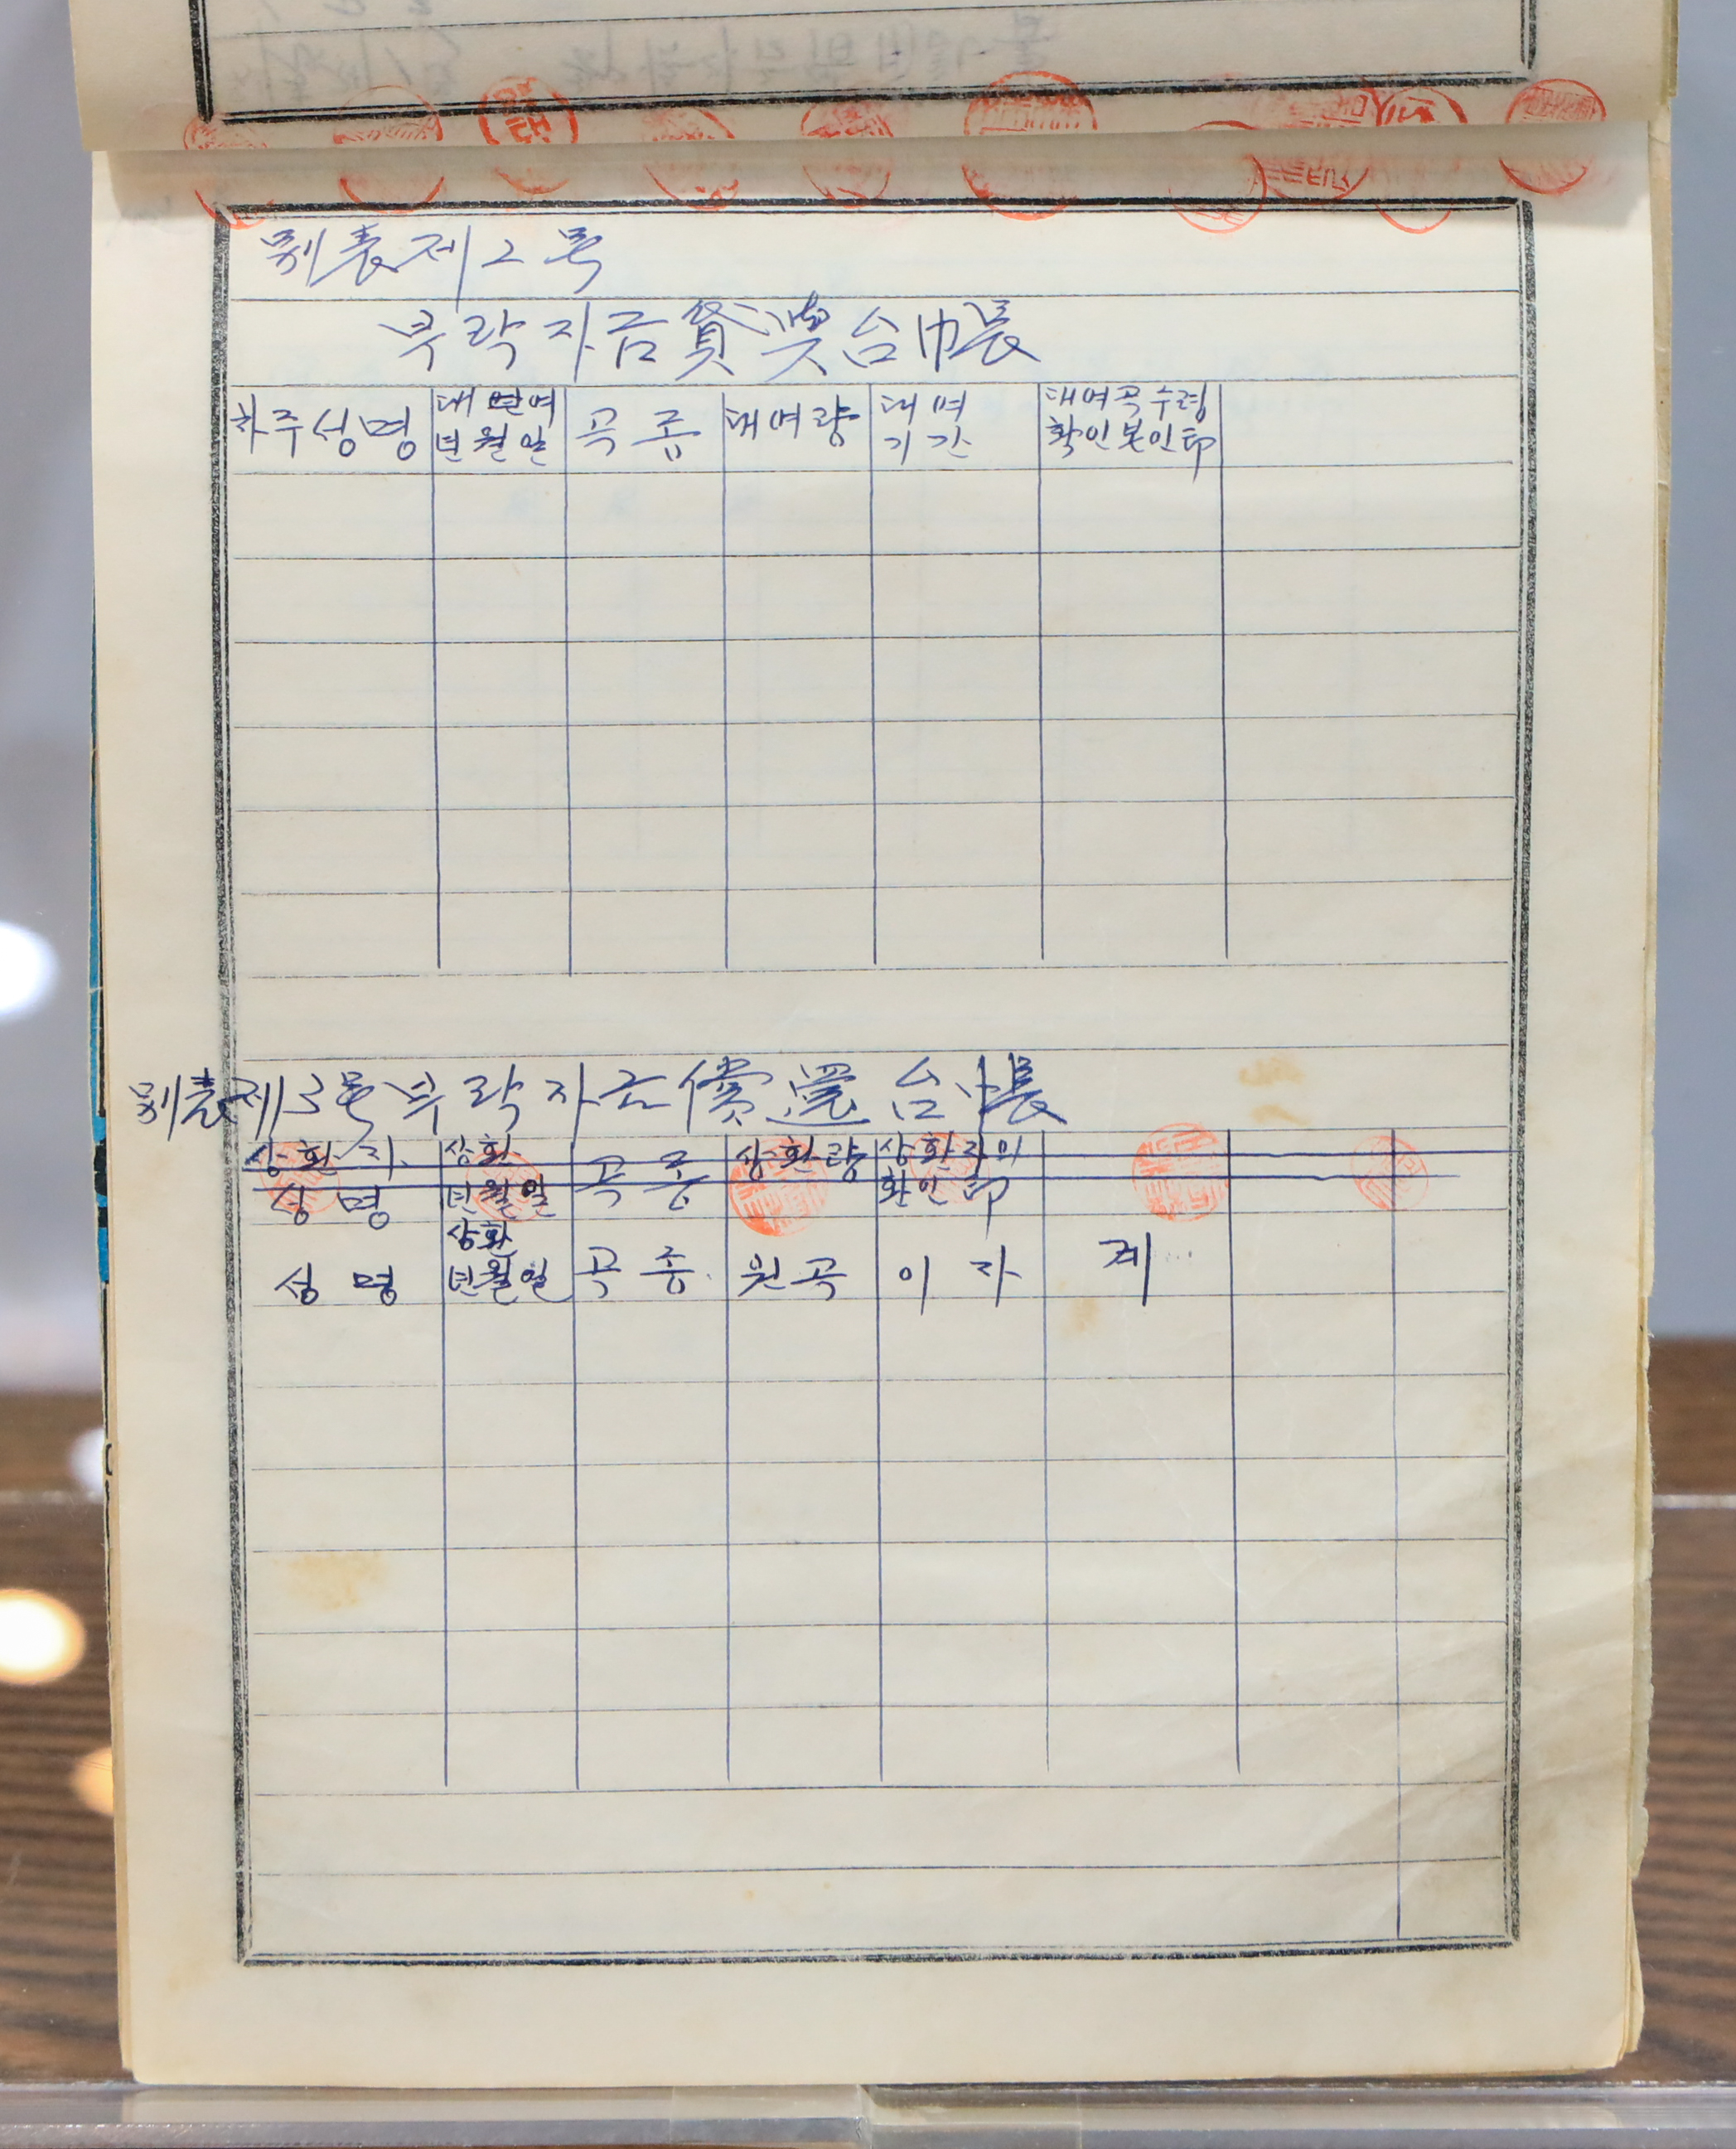 別表제2号
부락자금貸與台帳
차주성명 대여년월일 곡종 대여량 대여기간 대여곡수령확인본인印
別表제3号 부락자금償還台帳
상환자성명 상환년월일 곡종 상환량 상환자의확인印
성명 상환년월일 곡종 원곡 이자 계